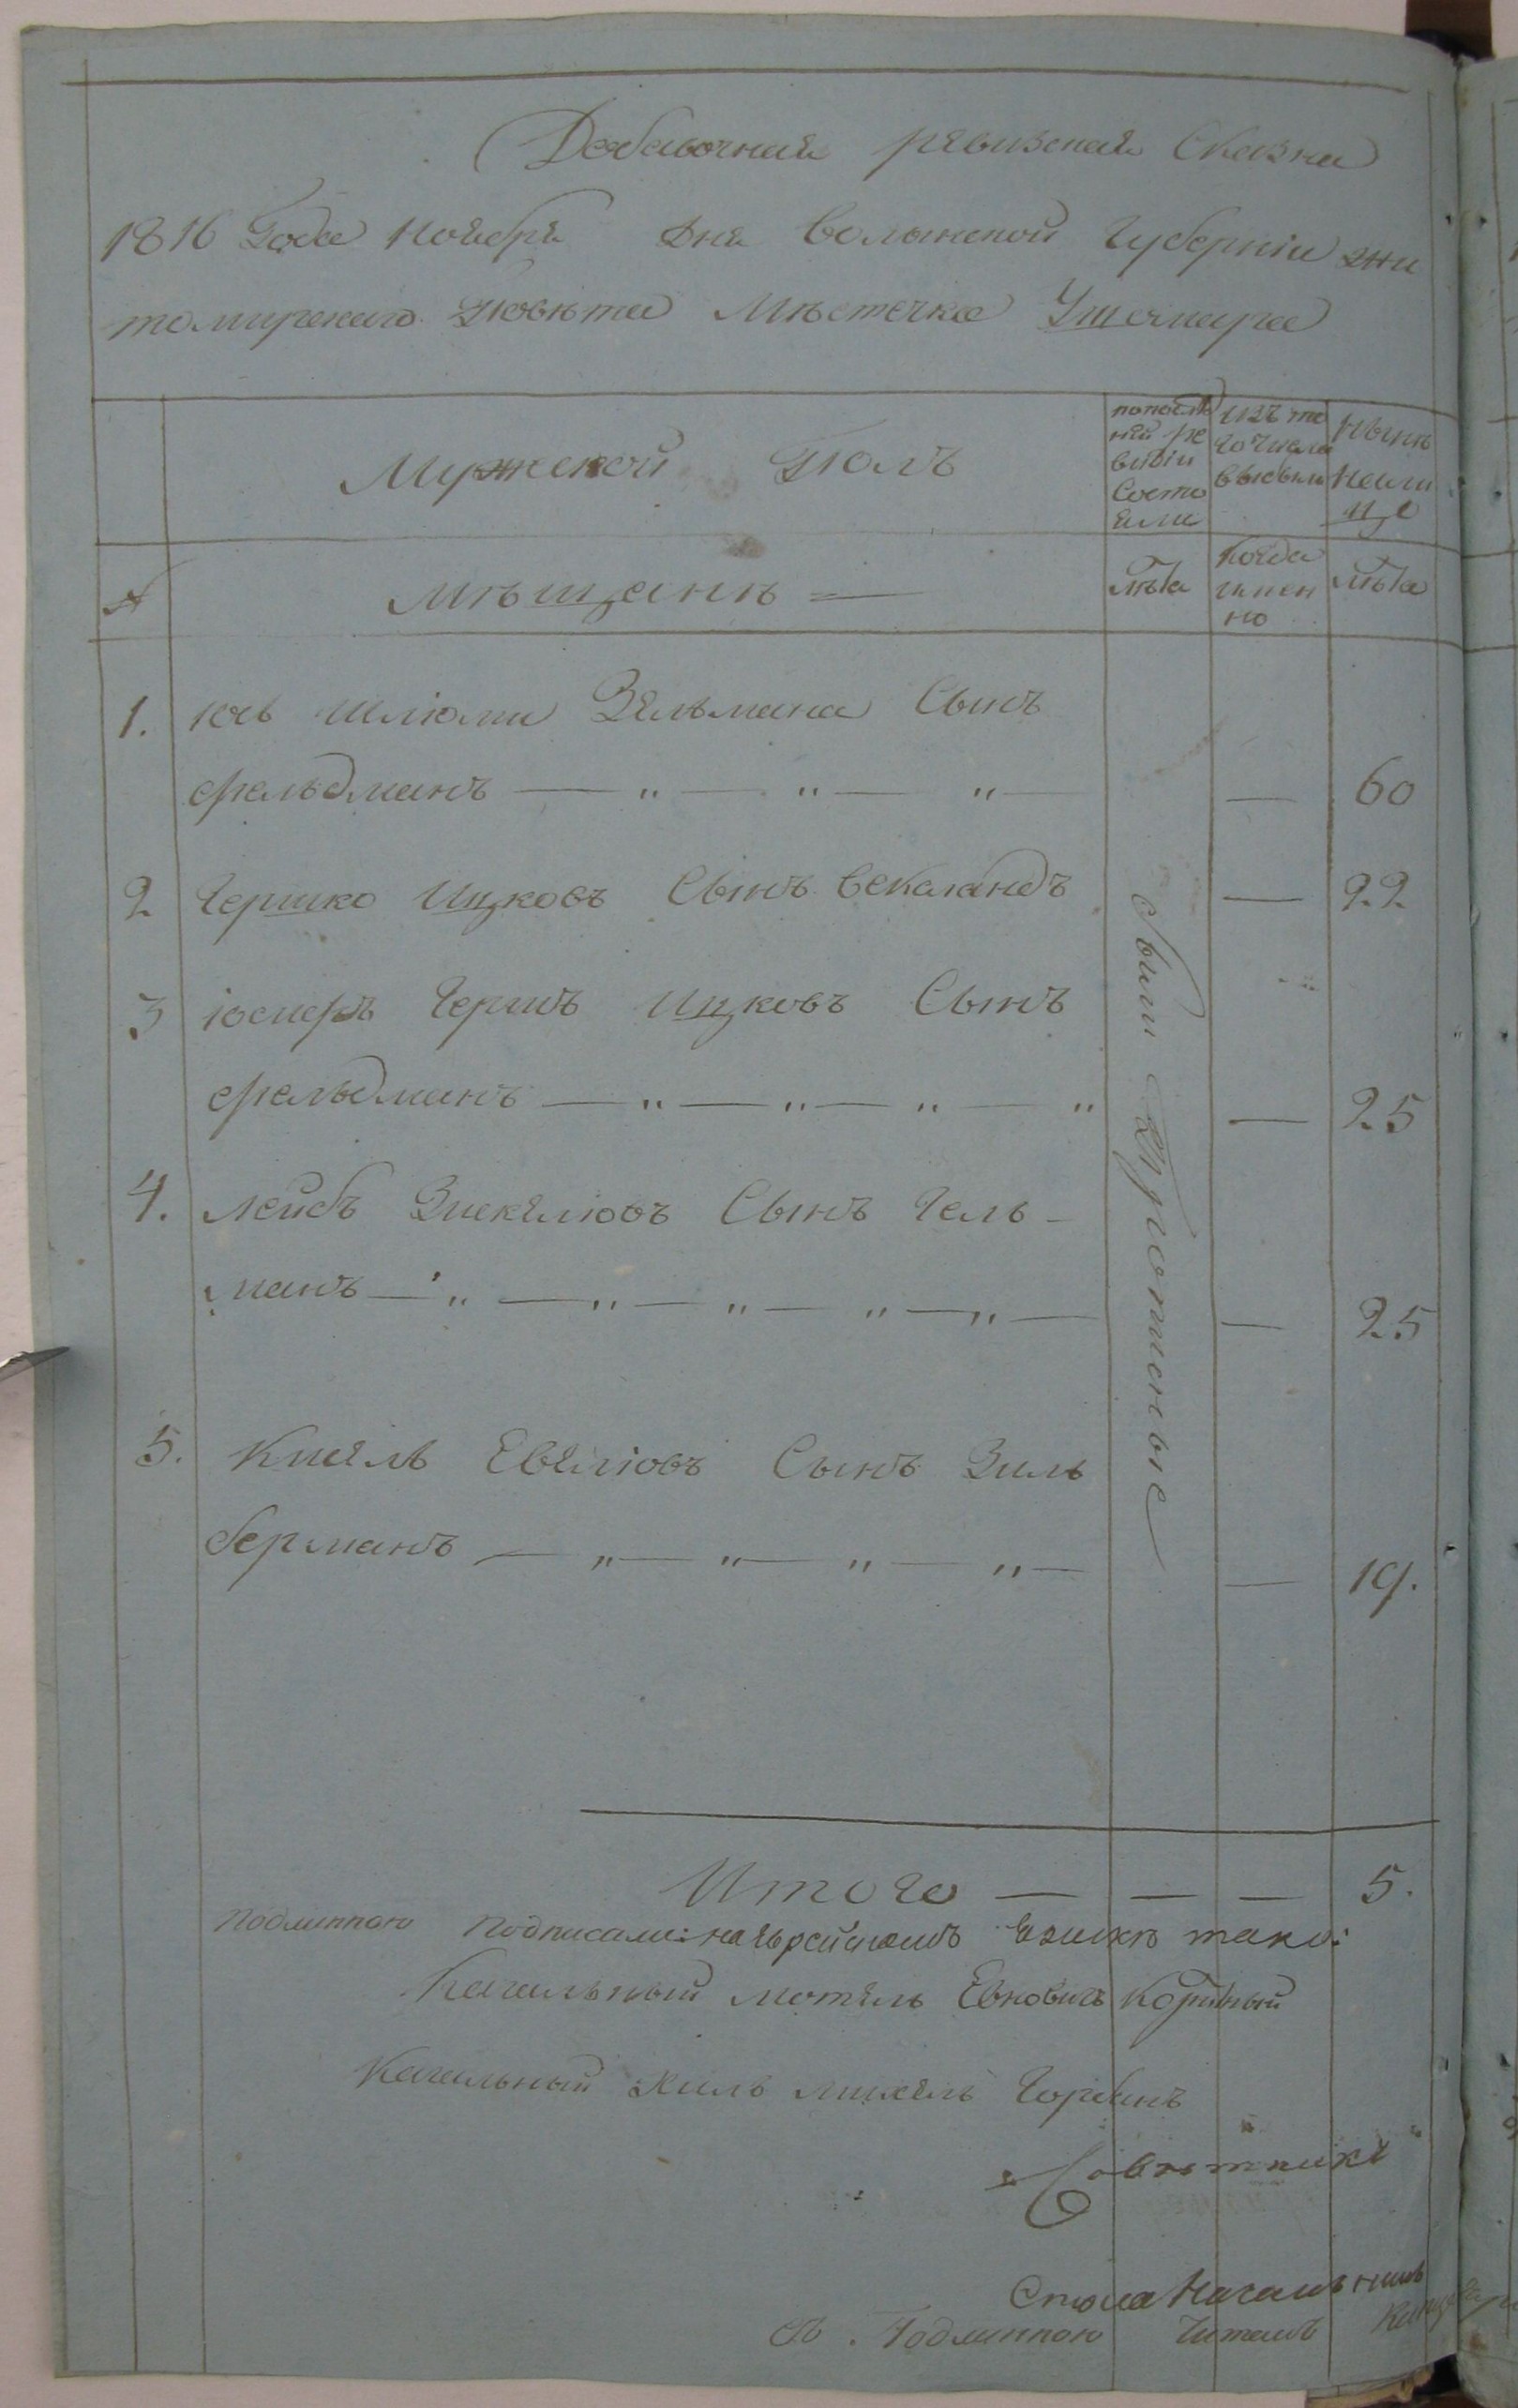 Добавочная ревизская Сказка
1816 Года Ноября дня Волынской Губернiи жи
томирскаго повѣта Мѣстечка Ушомира
Мужескои Полъ
попослѣд
ней ре
визiи
Состо
яли
изъ то
го числа
выбыли
Нынѣ
на ли
цо
№
мѣщанѣ —
лѣта
когда
имен
но
лѣта
1. Шлюма Зельмана Сынъ
фельдманъ — „ — „ — „ — — 60
2 Гершко Ицковъ Сынъ — 22
3 Iосифъ Гершъ Ицковъ Сынъ
фельдманъ — „ — „ — „ — „ — 25
4. Лейбъ Сынъ Гель-
манъ — „ — „ — „ — „ — „ — — 25
5. Кисель Сынъ Зиль
берманъ — „ — „ — „ — „ — — 19.
Итого — — — 5.
Подлинною подписали: на Еврейскомъ языкѣ тако:
Кагальный мотель Евновичъ
Кагальный Хиль михель
Совѣтникъ
Стола Начальникъ
Съ Подлинною Читалъ